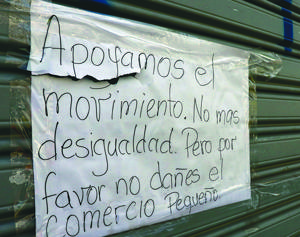 Apoyamos el
movimiento. No mas
desigualdad. Pero por
favor no dañes el
comercio Pequeño.